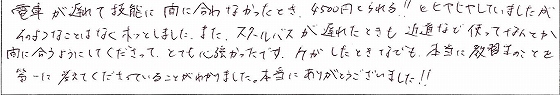 電車が遅れて技能に間に合わなかったとき、4500円とられる!!とヒヤヒヤしていましたが
そのようなことはなく、ホッとしました。また、スクールバスが遅れたときも近道など使ってなんとか
間に合うようにしてくださって、とても心強かったです。ケガしたときなども、本当に教習生のことを
第一に考えてくださっていることがわかりました。本当にありがとうございました!!